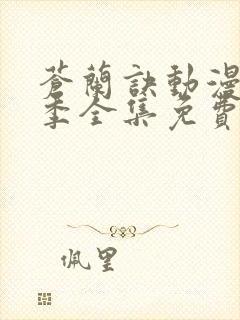 蒼蘭訣動漫
季全集免費
佩里